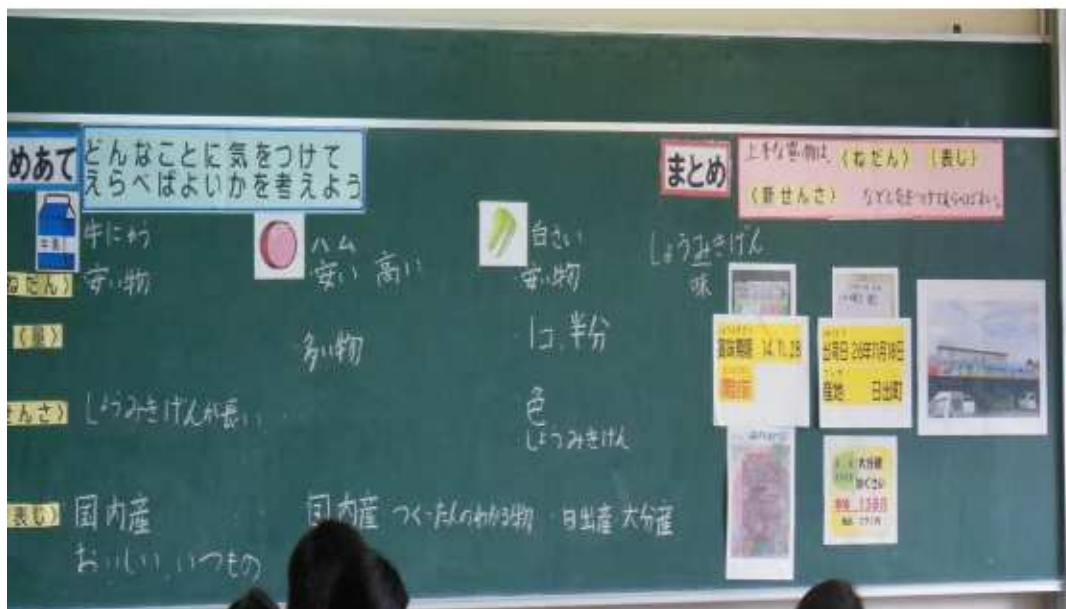 めあて
どんなことに気をつけて
えらべばよいかを考えよう
まとめ
上手な買い物は、(ねだん) (表じ)
(新せんさ) などに気をつけてえらべばよい。
牛乳
牛にゅう
ハム
白さい
しょうみきげん
味
ねだん)
安い物
安い 高い
安い物
(量)
多い物
1コ、半分
せんさ)
しょうみきげんが長い
色
しょうみきげん
表じ)
国内産
おいしい、いつもの
国内産 つくった人のわかる物
日出産 大分産
賞味期限 14.11.28
開封前
出荷日 26年11月18日
産地 日出町
大分産
はくさい
138円